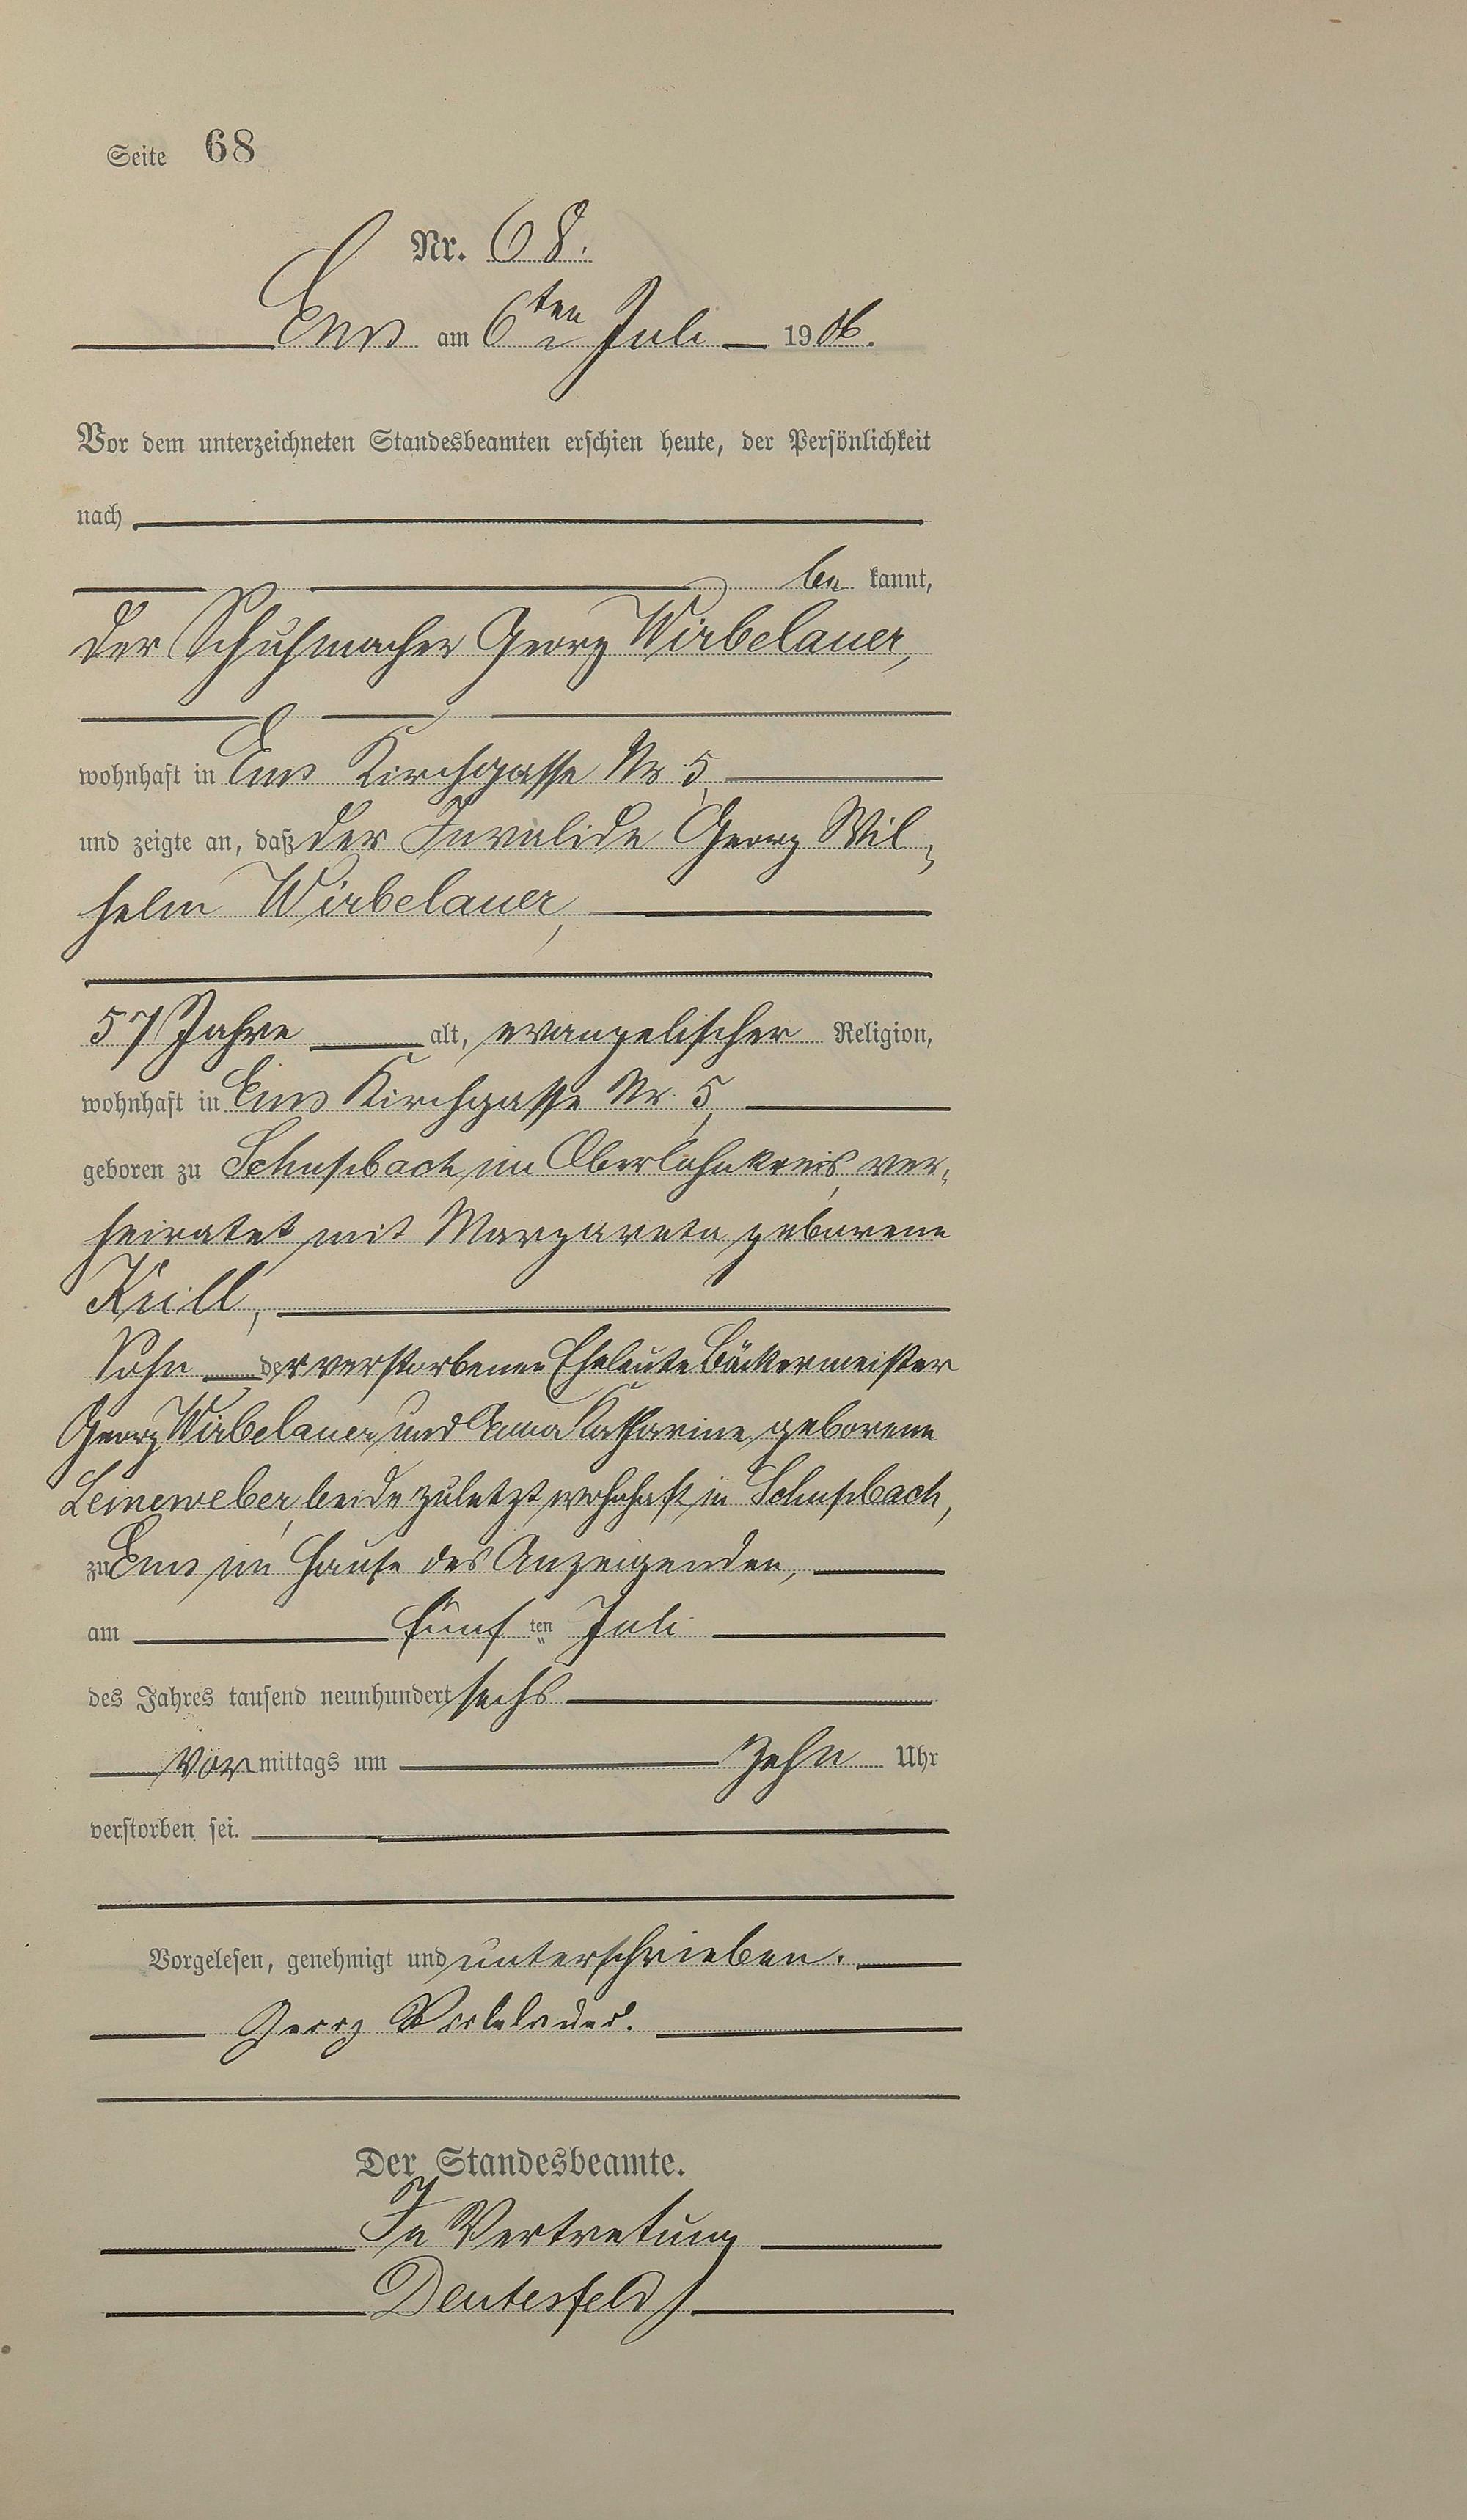 Seite 68
Nr. 68.
Ems am 6ten Juli 1906.
Vor dem unterzeichneten Standesbeamten erschien heute, der Persönlichkeit
nach
be kannt,
der Schuhmacher Georg Wirbelauer,
wohnhaft in Ems Kirchgasse Nr 5,
und zeigte an, daß der Invalide Georg Wil-
helm Wirbelauer,
57 Jahre alt, evangelischer Religion,
wohnhaft in Ems Kirchgasse Nr. 5,
geboren zu Schupbach im Oberlahnkreis, ver-
heiratet mit Margareta geborene
Krill,
Sohn der verstorbenen Eheleute Bäckermeister
Georg Wirbelauer und Anna Katharine geborene
Leineweber, beide zuletzt wohnhaft in Schupbach,
zu Ems im Hause des Anzeigenden,
am fünf ten Juli
des Jahres tausend neunhundert sechs
Vor mittags um zehn Uhr
verstorben sei.
Vorgelesen, genehmigt und unterschrieben.
Georg Wirbelauer.
Der Standesbeamte.
In Vertretung
Deutesfeld